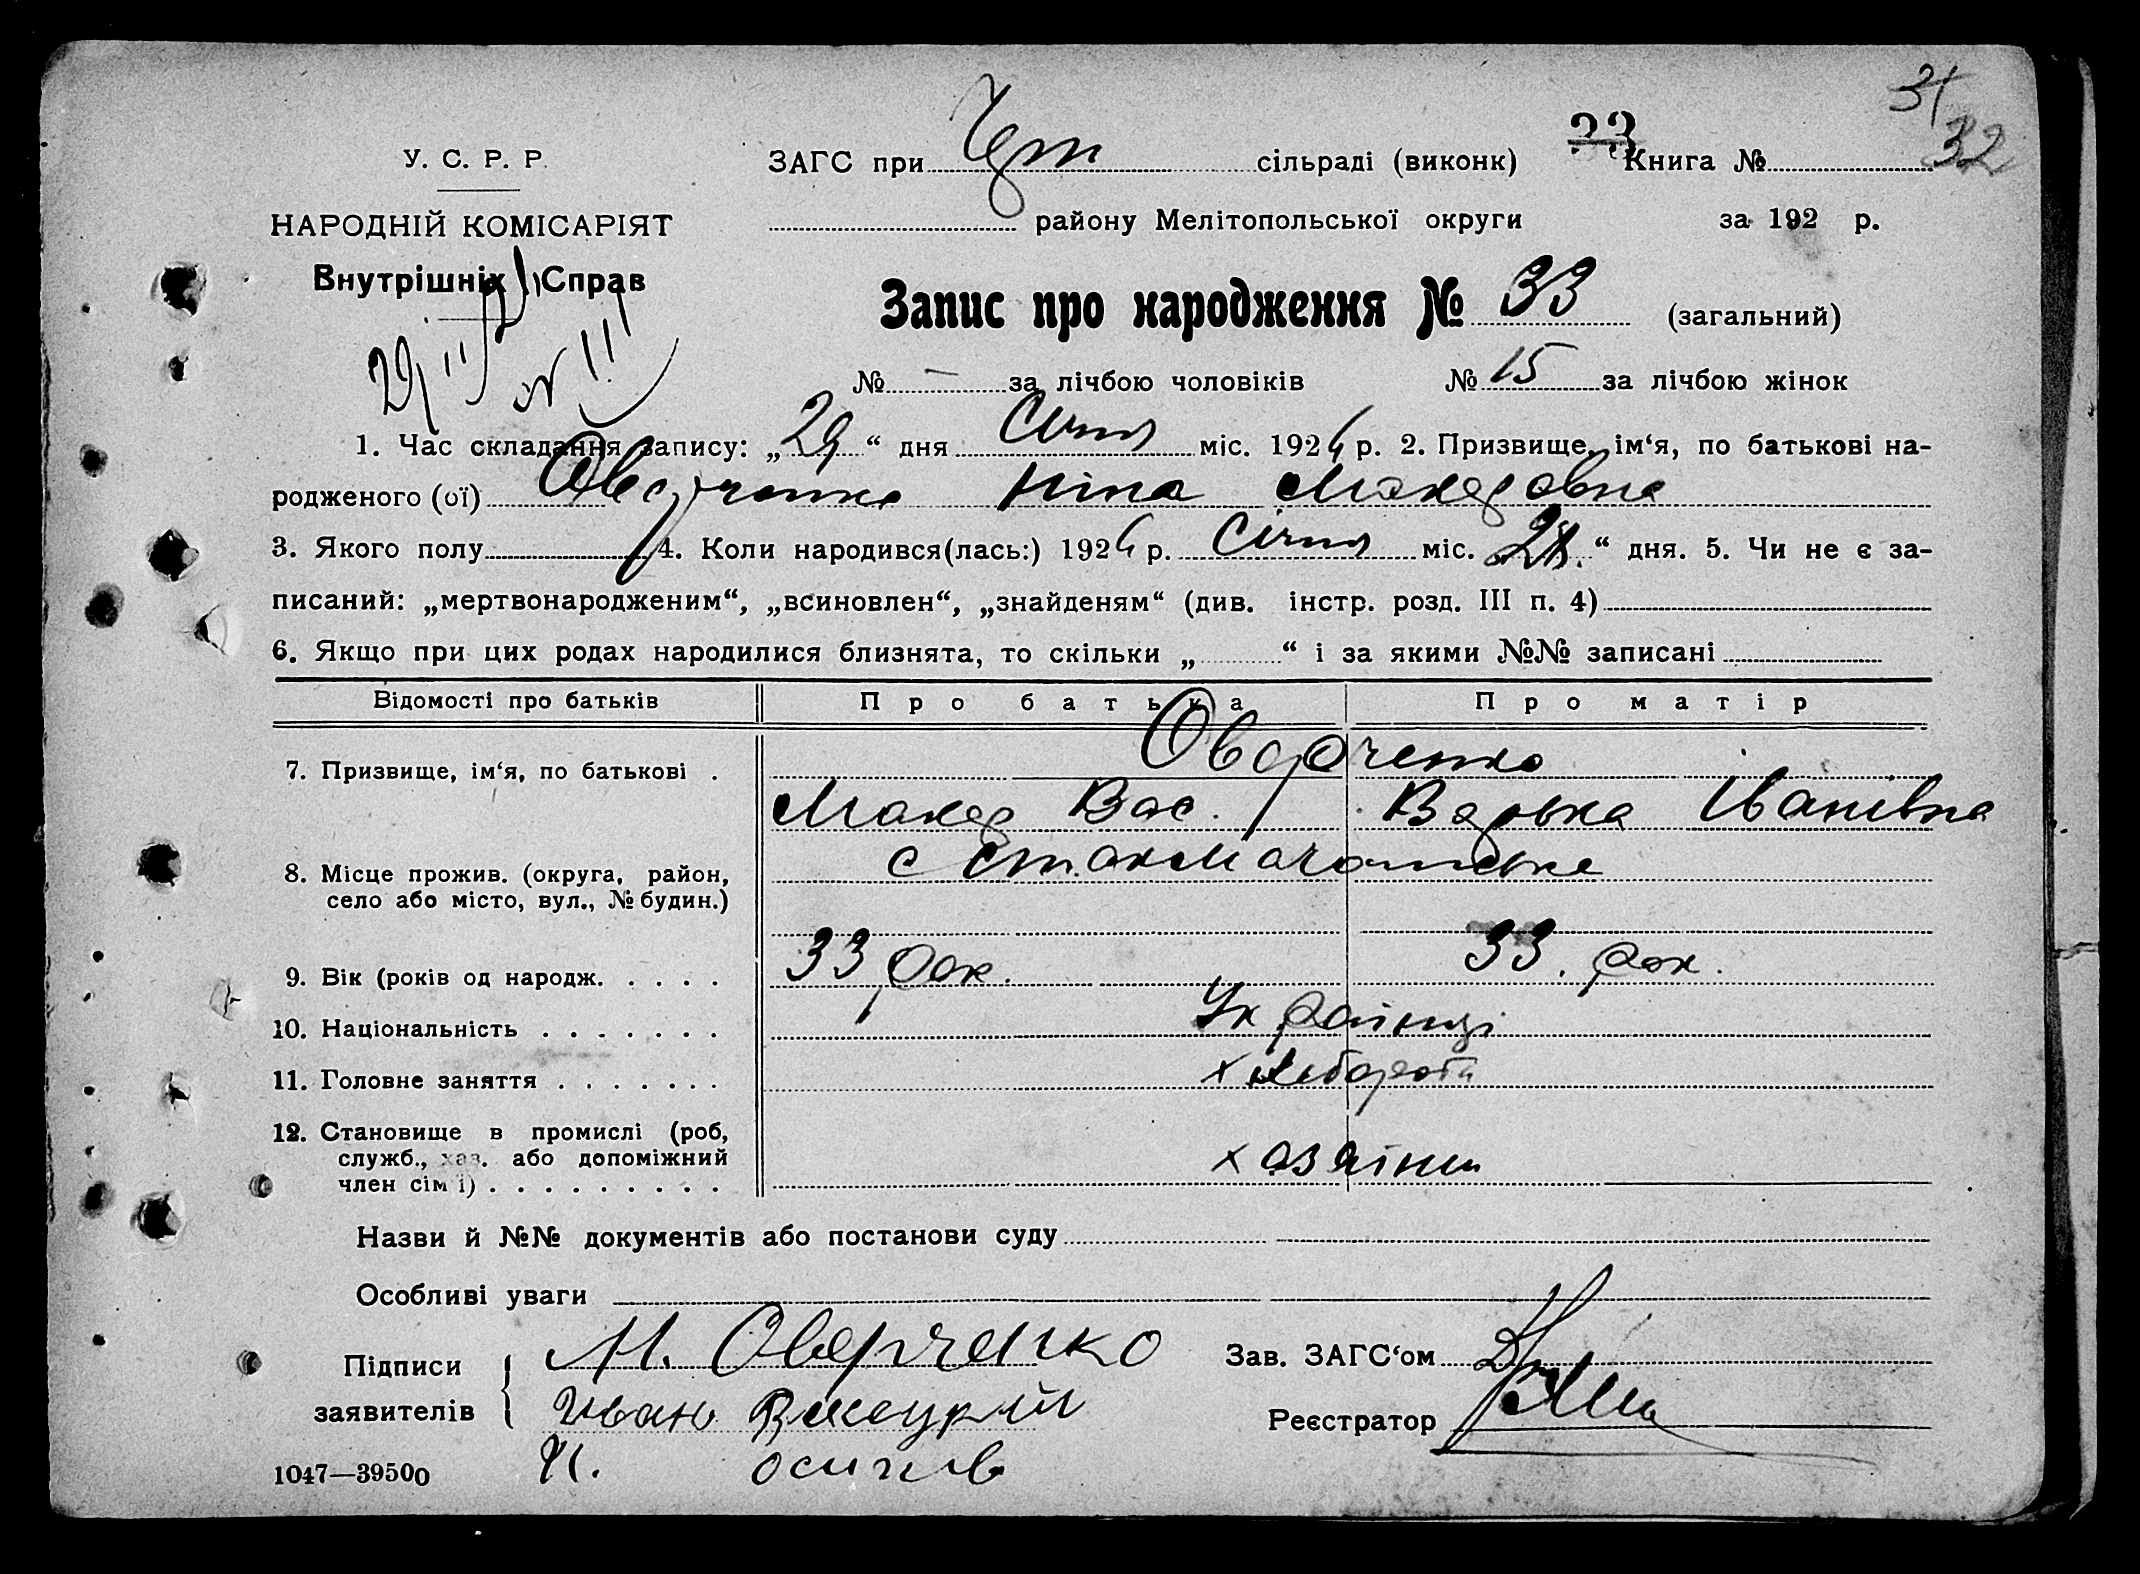 31
32
У. С. Р. Р.
ЗАГС при сільраді (виконк) 33 Книга №
НАРОДНІЙ КОМІСАРІЯТ
району Мелітопольської округи за 192 р.
Внутрішніх Справ
Запис про народження № 33 (загальний)
№ — за лічбою чоловіків № 15 за лічбою жінок
1. Час складання запису: „29“ дня Січня міс. 1926 р. 2. Призвище, ім‘я, по батькові на-
родженого (ої) Оверченко Ніна
3. Якого полу 4. Коли народився(лась:) 1926 р. Січня міс. „28.“ дня. 5. Чи не є за-
писаний: „мертвонародженим“, „всиновлен“, „знайденям“ (див. інстр. розд. III п. 4)
6. Якщо при цих родах народилися близнята, то скільки „ “ і за якими №№ записані
Відомості про батьків Про батька Про матір
7. Призвище, ім‘я, по батькові . Оверченко
Вас. Варька Іванівна
8. Місце прожив. (округа, район,
село або місто, вул., № будин.)
9. Вік (років од народж. . . . . 33 рок. 33. рок.
10. Національність . . . . . . . Українці
11. Головне заняття . . . . . . . хлебороби
12. Становище в промислі (роб,
служб., хаз. або допоміжний хазяіни
член сім‘ї) . . . . . . . . .
Назви й №№ документів або постанови суду
Особливі уваги
Підписи М. Оверченко Зав. ЗАГС‘ом
заявителів Иван Реєстратор
1047—39500